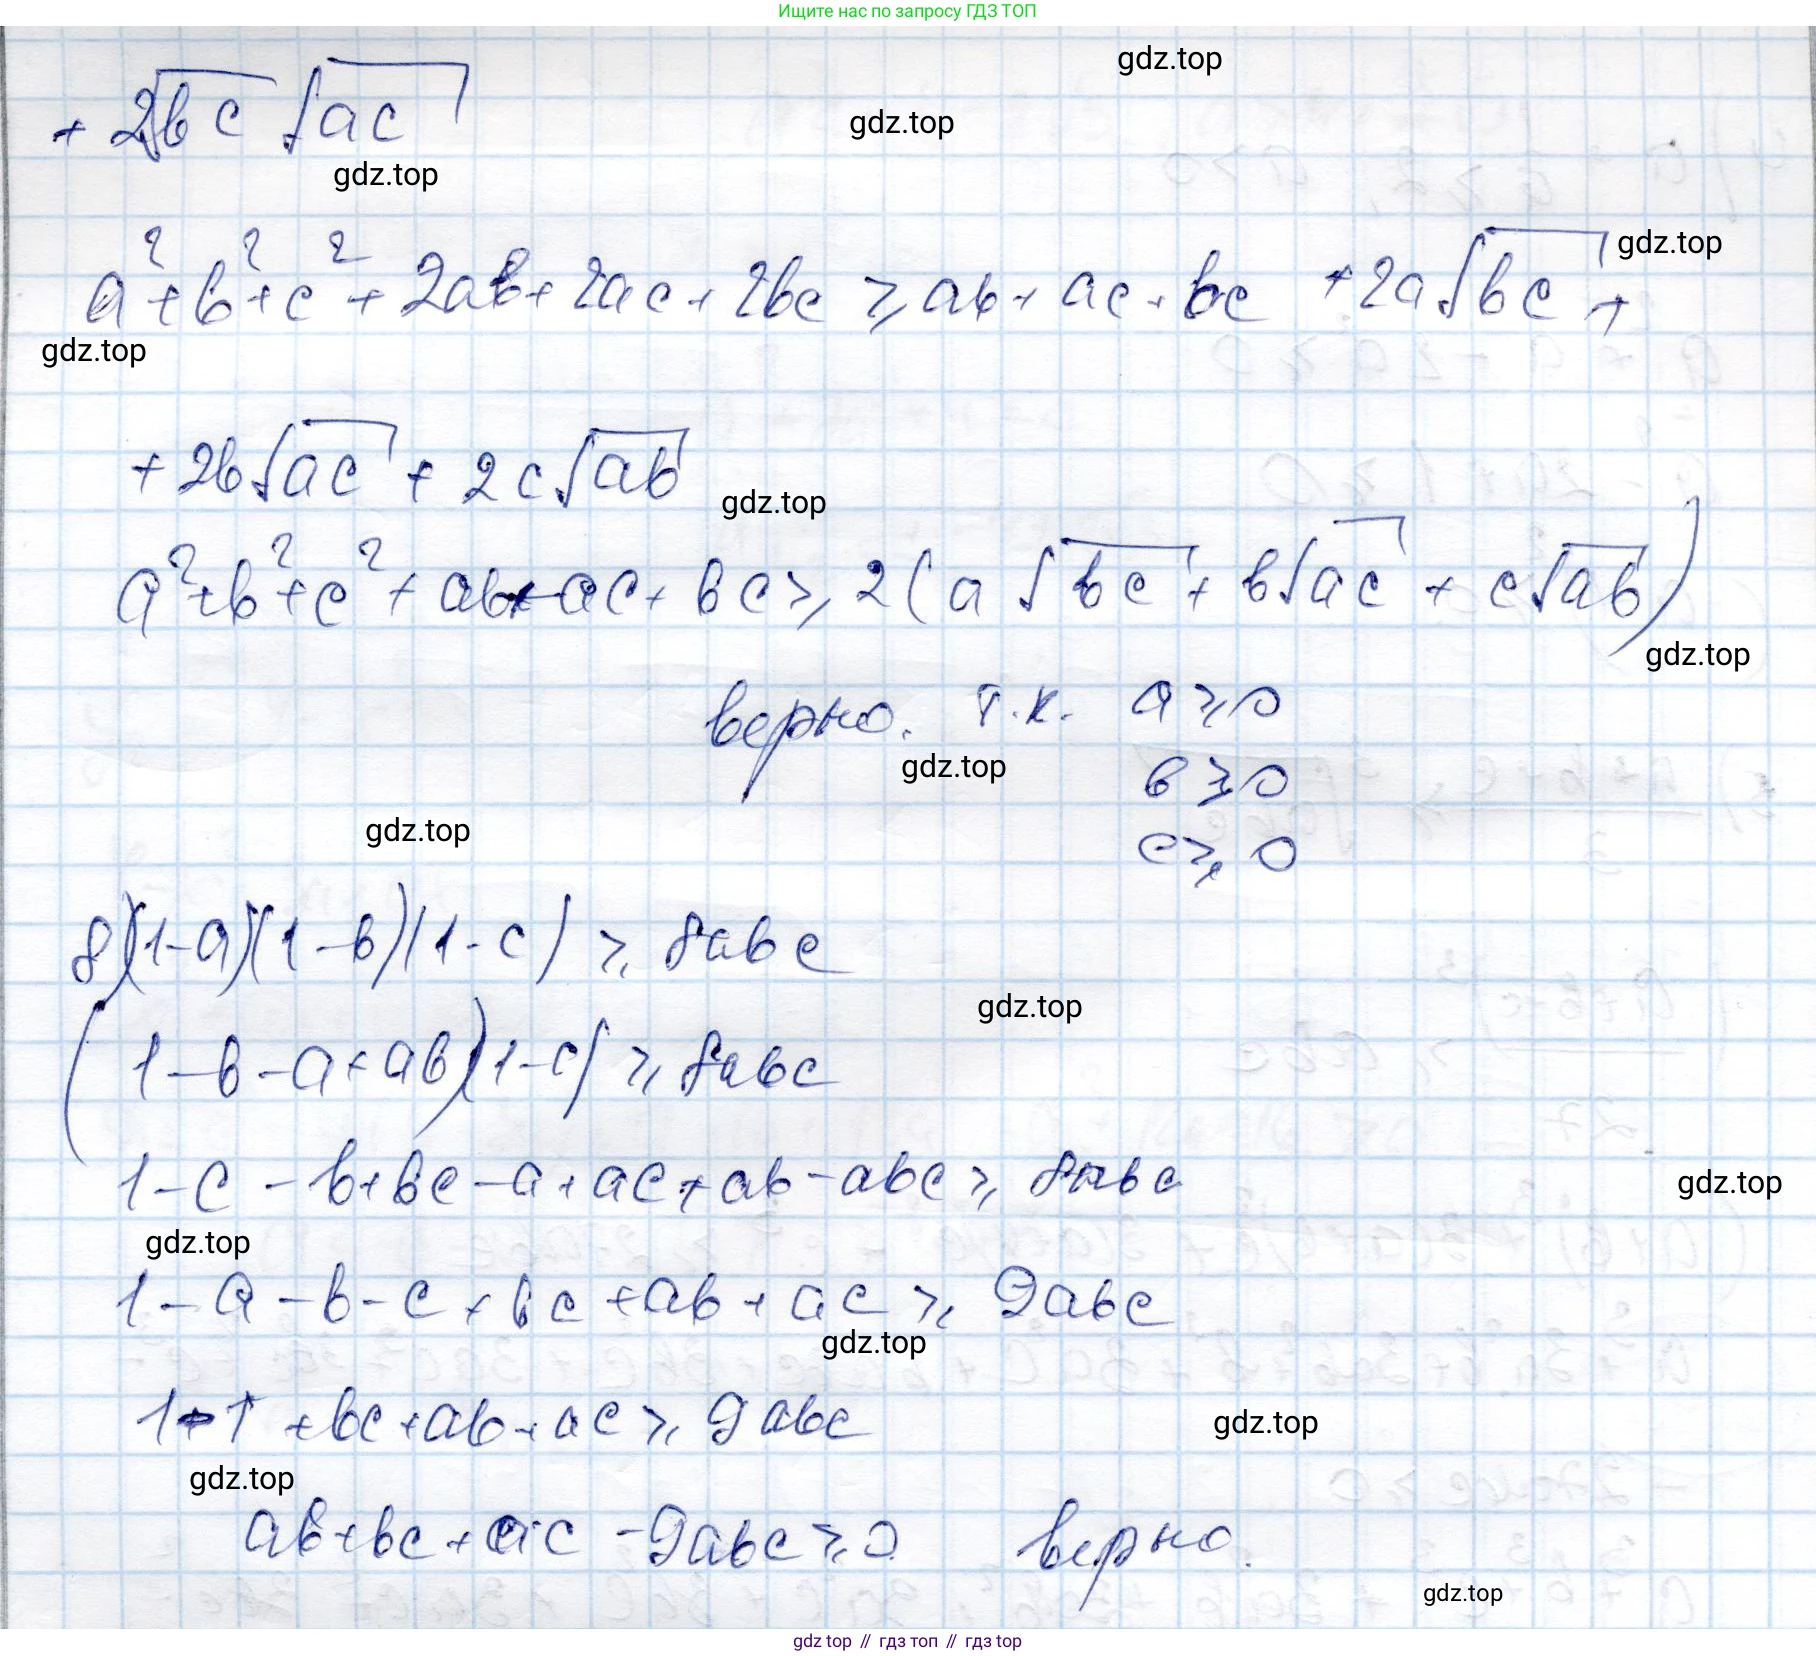 Ищите нас по запросу ГДЗ ТОП
gdz.top
+ 2√bc √ac
gdz.top
gdz.top
a² + b² + c² + 2ab + 2ac + 2bc ⩾ ab + ac + bc + 2a√bc +
gdz.top
gdz.top
+ 2b√ac + 2c√ab
gdz.top
a² + b² + c² + ab + ac + bc ⩾ 2(a√bc + b√ac + c√ab)
gdz.top
верно. т.к. a ⩾ 0
gdz.top
b ⩾ 0
gdz.top
c ⩾ 0
8) (1-a)(1-b)(1-c) ⩾ 8abc
gdz.top
(1-b-a+ab)(1-c) ⩾ 8abc
1-c-b+bc-a+ac+ab-abc ⩾ 8abc
gdz.top
gdz.top
1-a-b-c+bc+ab+ac ⩾ 9abc
gdz.top
1-1+bc+ab+ac ⩾ 9abc
gdz.top
gdz.top
ab+bc+ac-9abc ⩾ 0 верно.
gdz.top
gdz top // гдз топ // гдз top